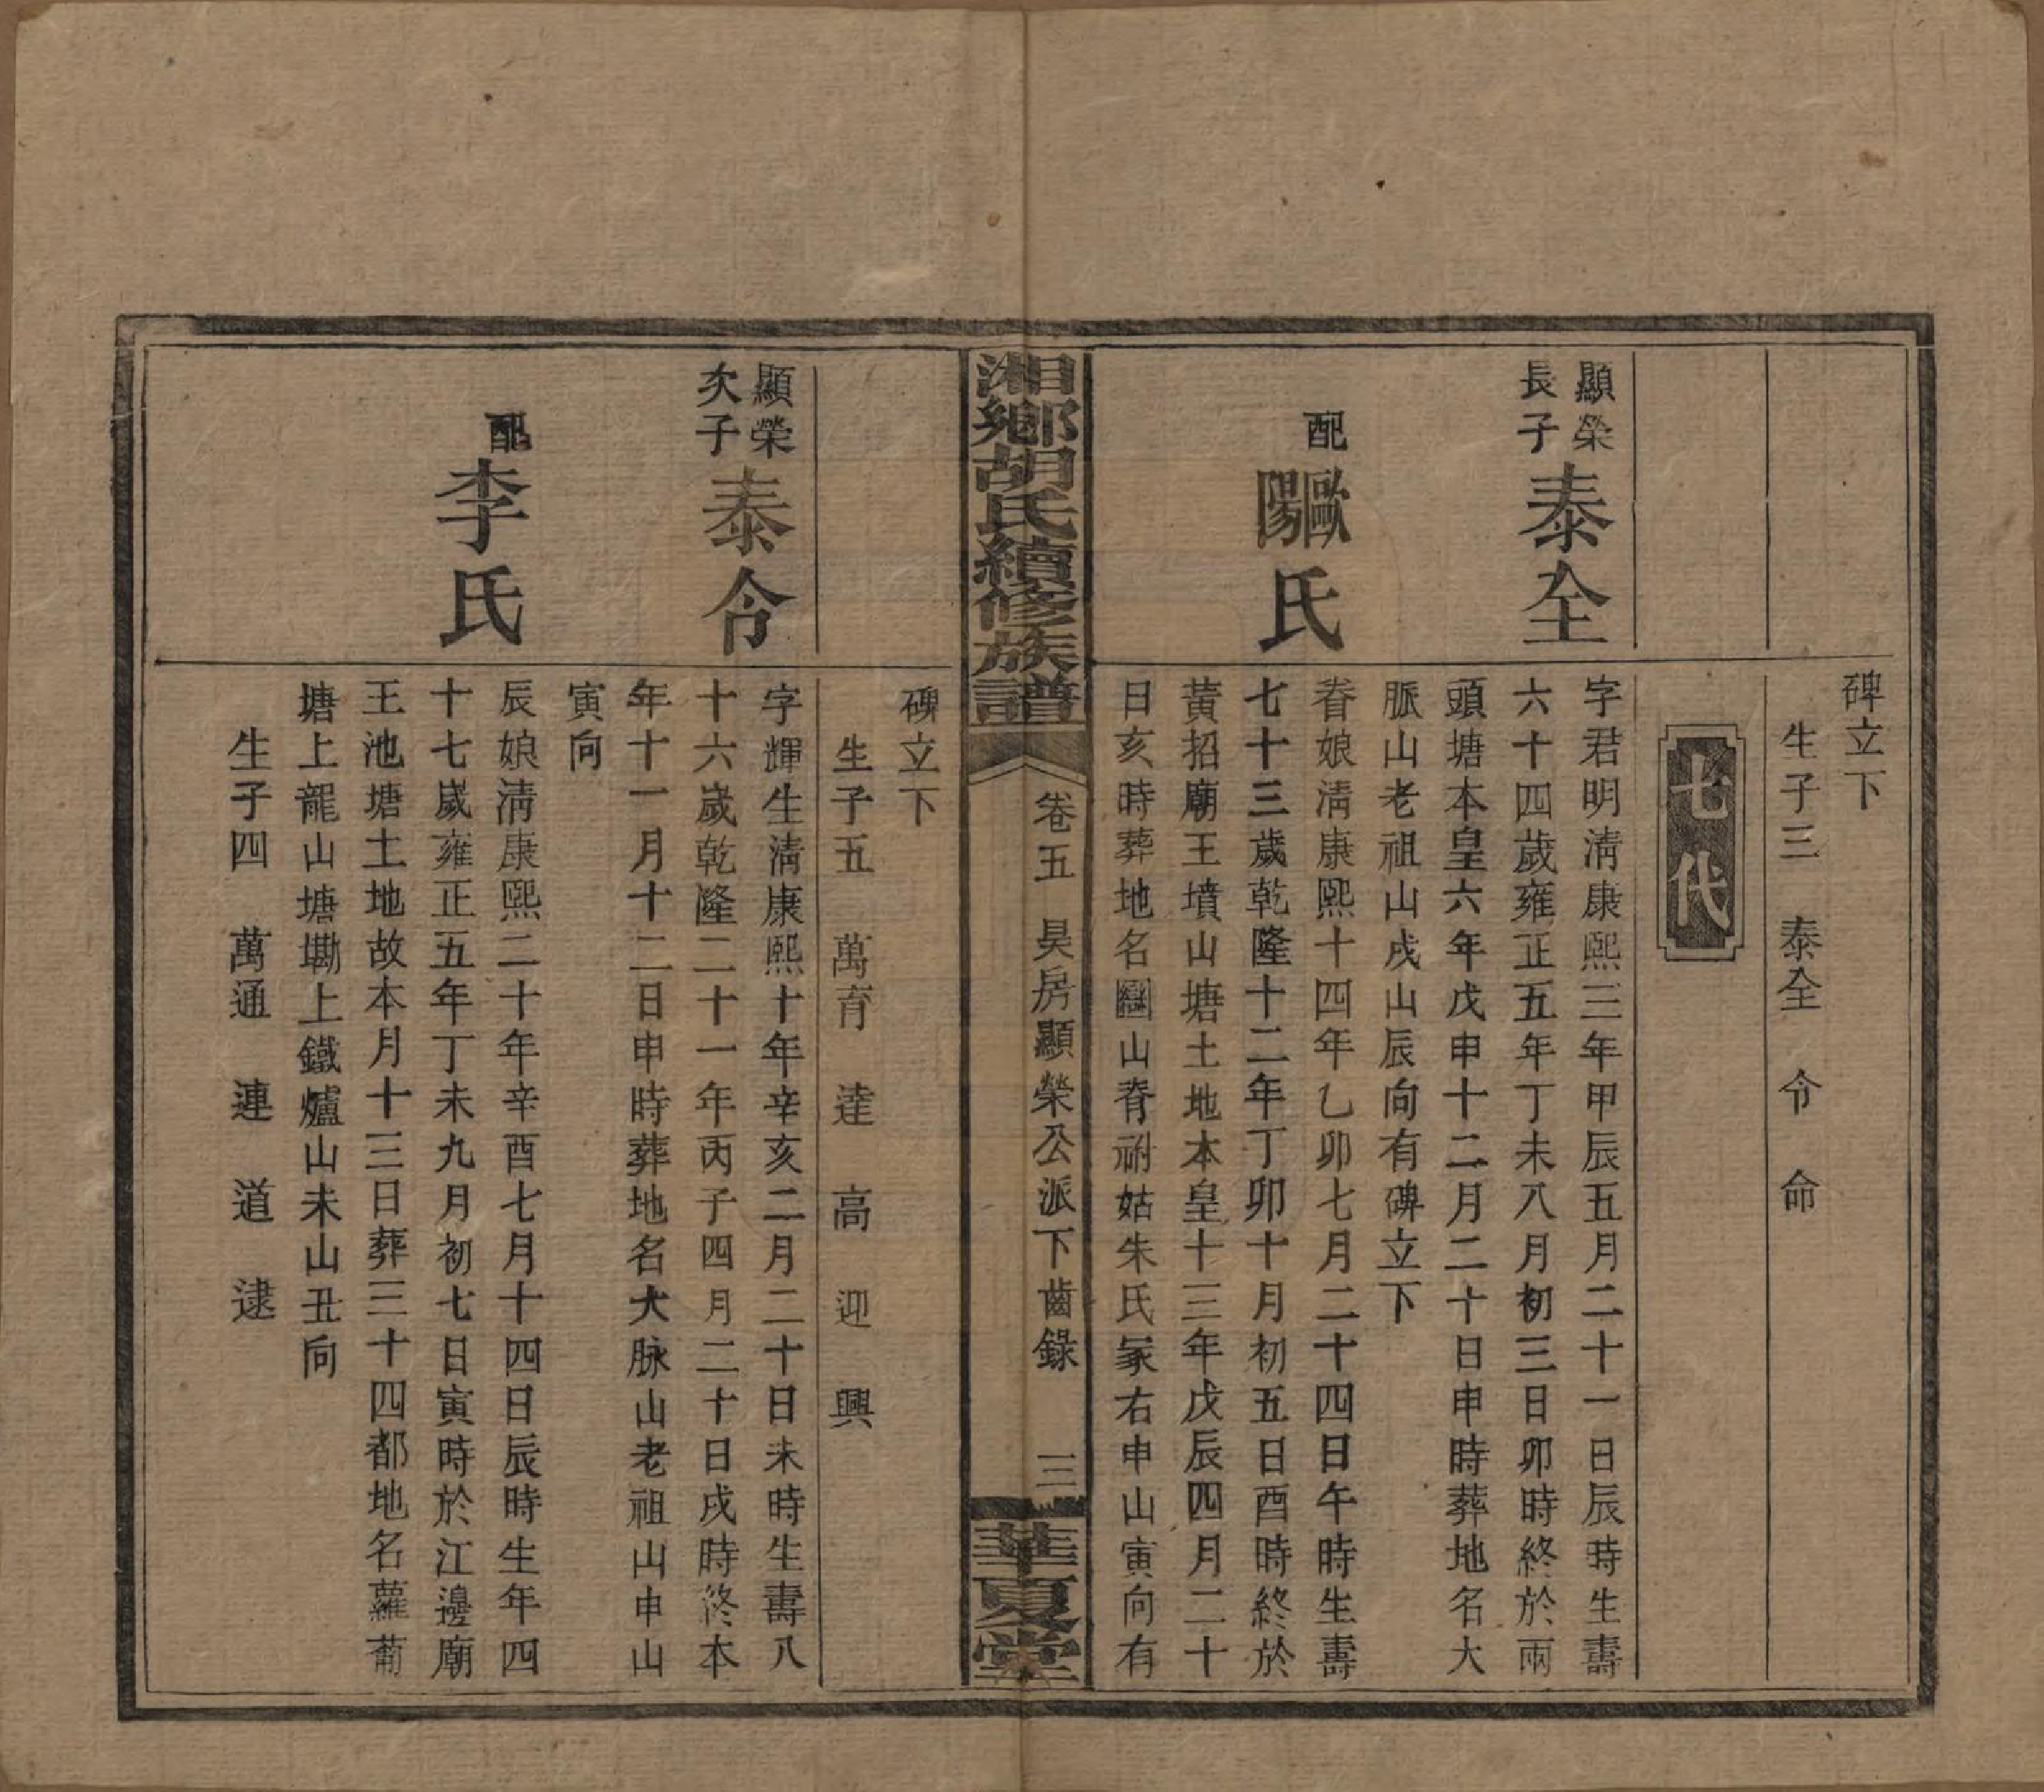 碑立下
生子三 泰全 令 命
七代
顯榮
長子
泰全
字君明淸康熙三年甲辰五月二十一日辰時生壽
六十四歲雍正五年丁未八月初三日卯時終於兩
頭塘本皇六年戊申十二月二十日申時葬地名大
脈山老祖山戌山辰向有碑立下
配
歐陽氏
眷娘淸康熙十四年乙卯七月二十四日午時生壽
七十三歲乾隆十二年丁卯十月初五日酉時終於
黃招廟王墳山塘土地本皇十三年戊辰四月二十
日亥時葬地名團山脊祔姑朱氏冡右申山寅向有
湘鄉胡氏續修族譜
卷五 昊房顯榮公派下齒錄 三
華夏堂
碑立下
生子五 萬育 達 高 迎 興
顯榮
次子
泰令
字輝生淸康熙十年辛亥二月二十日未時生壽八
十六歲乾隆二十一年丙子四月二十日戌時終本
年十一月十二日申時葬地名大脉山老祖山申山
寅向
配
李氏
辰娘淸康熙二十年辛酉七月十四日辰時生年四
十七歲雍正五年丁未九月初七日寅時於江邊廟
王池塘土地故本月十三日葬三十四都地名蘿蔔
塘上龍山塘墈上鐵爐山未山丑向
生子四 萬通 連 道 逮